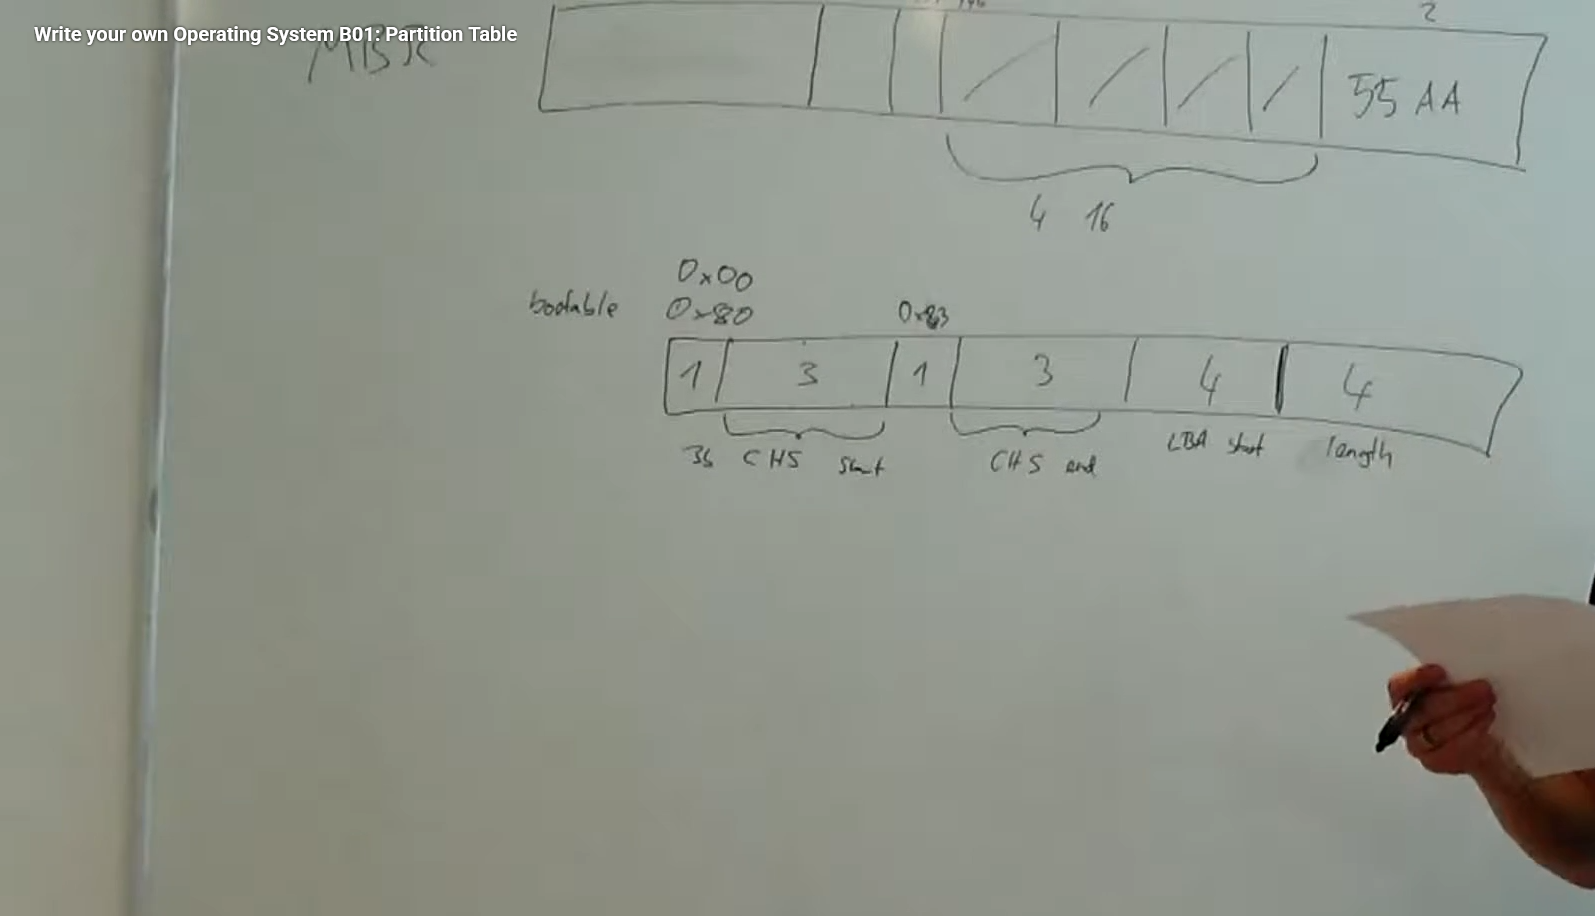 Write your own Operating System B01: Partition Table
MBR
2
55 AA
4 16
0x00
bootable 0x80 0x83
1 3 1 3 4 4
CHS start CHS end LBA start length